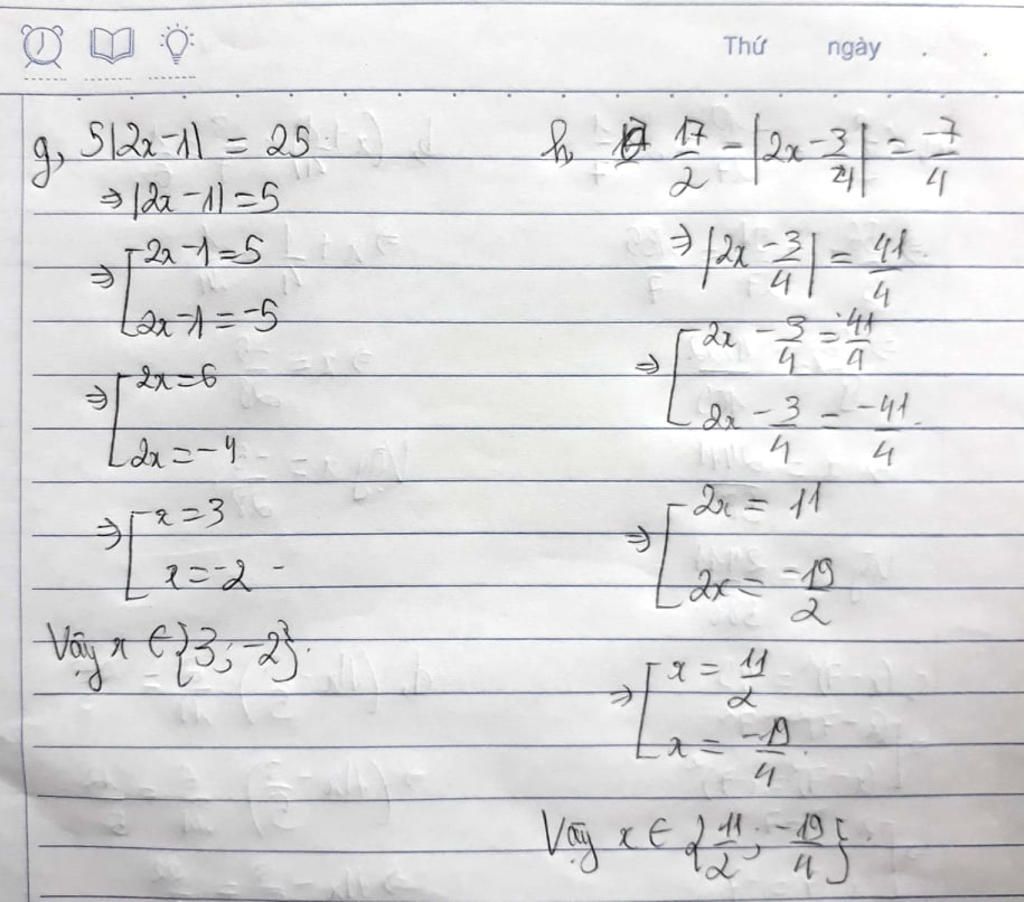 Thứ ngày
g, 5|2x-1| = 25
⇒ |2x-1| = 5
⇒ [ 2x-1 = 5
2x-1 = -5
⇒ [ 2x = 6
2x = -4
⇒ [ x = 3
x = -2
Vậy x ∈ {3; -2}.
h, 17/2 - |2x - 3/4| = -7/4
⇒ |2x - 3/4| = 41/4
⇒ [ 2x - 3/4 = 41/4
2x - 3/4 = -41/4
⇒ [ 2x = 11
2x = -19/2
⇒ [ x = 11/2
x = -19/4
Vậy x ∈ {11/2; -19/4}